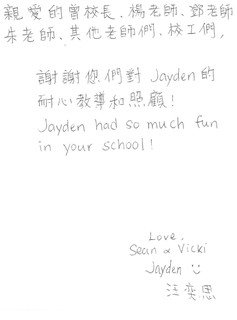 親愛的曾校長、楊老師、鄧老師、
朱老師、其他老師們、校工們，
謝謝您們對 Jayden 的
耐心教導和照顧！
Jayden had so much fun
in your school!
Love,
Sean & Vicki
Jayden
汪奕恩